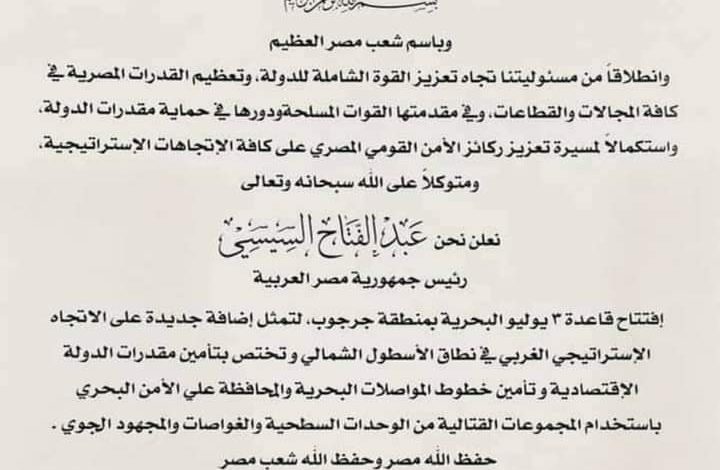 بسم الله الرحمن الرحيم
وباسم شعب مصر العظيم
وانطلاقاً من مسئوليتنا تجاه تعزيز القوة الشاملة للدولة، وتعظيم القدرات المصرية في
كافة المجالات والقطاعات، وفي مقدمتها القوات المسلحةودورها في حماية مقدرات الدولة،
واستكمالاً لمسيرة تعزيز ركائز الأمن القومي المصري على كافة الإتجاهات الإستراتيجية،
ومتوكلاً على الله سبحانه وتعالى
نعلن نحن عبد الفتاح السيسي
رئيس جمهورية مصر العربية
إفتتاح قاعدة ٣ يوليو البحرية بمنطقة جرجوب، لتمثل إضافة جديدة على الاتجاه
الإستراتيجي الغربي في نطاق الأسطول الشمالي وتختص بتأمين مقدرات الدولة
الإقتصادية وتأمين خطوط المواصلات البحرية والمحافظة علي الأمن البحري
باستخدام المجموعات القتالية من الوحدات السطحية والغواصات والمجهود الجوي .
حفظ الله مصر وحفظ الله شعب مصر